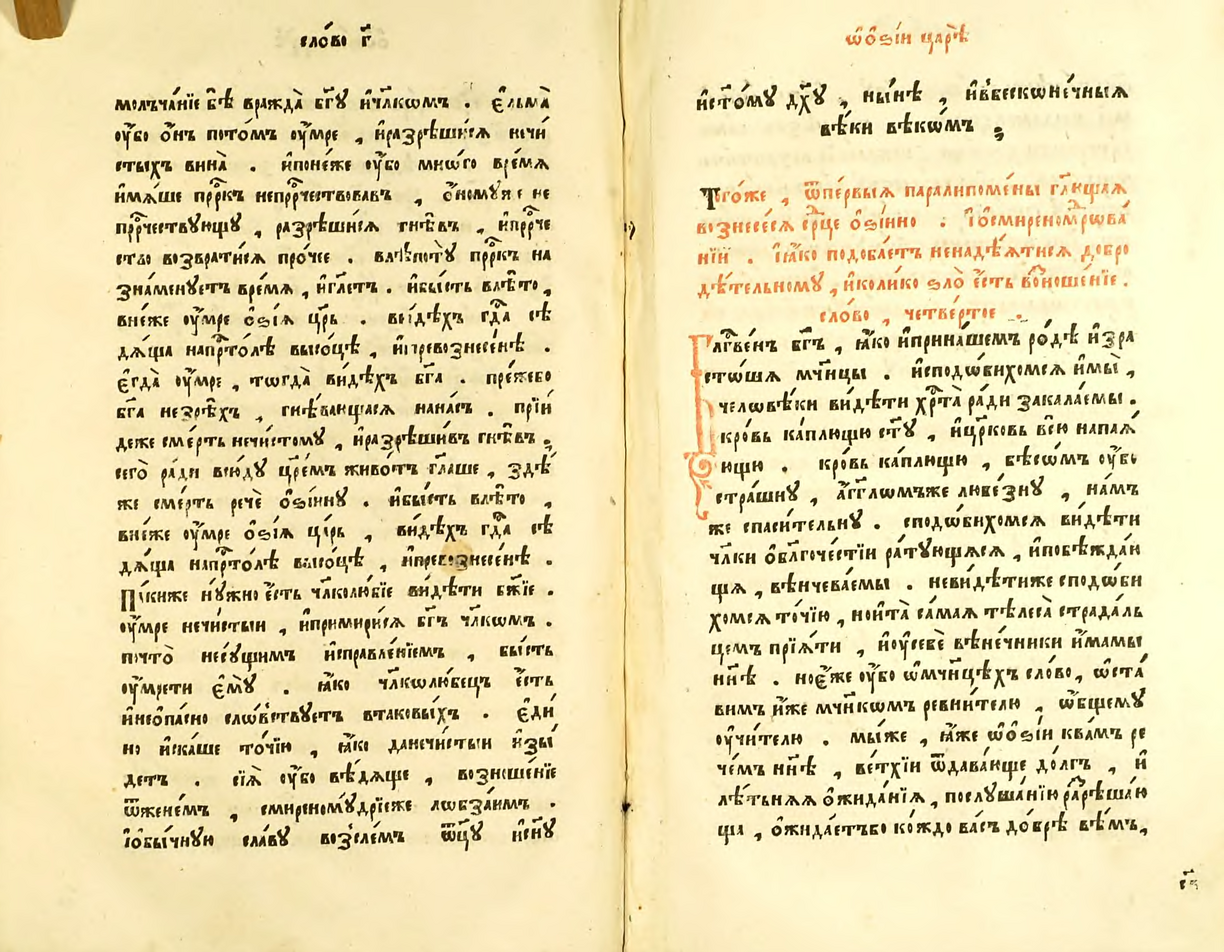 сло́во г҃
молъча́нїе бѣ̀ вражда̀ бг҃ꙋ ичл҃комъ . є҆льма̀
ᲂу҆́бо ѻ҆́нъ пото́мъ ᲂу҆́мре , и҆разрѣши́сѧ нечи
стыхъ вина̀ . и҆поне́же ᲂу҆́бо мно́го вре́мѧ
и҆мѧ́ше прⷪ҇ркъ непрⷪ҇рчествовавъ , ѻ҆номꙋ́же не
прⷪ҇рчествꙋющꙋ , разрѣши́сѧ гнѣ́въ , и҆прⷪ҇рче
ство возврати́сѧ про́чее . влѣ́потꙋ прⷪ҇ркъ на
знаменꙋ́етъ вре́мѧ , и҆гл҃етъ . и҆бы́сть влѣ́то ,
вне́же ᲂу҆́мре ѻ҆ѕі́ѧ цр҃ь . ви́дѣхъ гдⷭ҇а сѣ
дѧ́ща напрⷭ҇то́лѣ высо́цѣ , и҆превознесе́нѣ .
є҆гда̀ ᲂу҆́мре , тогда̀ ви́дѣхъ бг҃а . пре́жебо
бг҃а незрѣ́хъ , гнѣ́вающасѧ нана́съ . прїи́
деже сме́рть нечи́стомꙋ , и҆разрѣши́въ гнѣ́въ .
сего̀ ра́ди всю́дꙋ цр҃е́мъ живо́тъ гл҃аше , здѣ́
же сме́рть речѐ ѻ҆ѕі́инꙋ . и҆бы́сть влѣ́то ,
вне́же ᲂу҆́мре ѻ҆ѕі́ѧ ца́рь , ви́дѣхъ гдⷭ҇а сѣ
дѧ́ща напрⷭ҇то́лѣ высо́цѣ , и҆превознесе́нѣ .
По́ниже нꙋ́жно є҆́сть чл҃колю́бїе ви́дѣти бж҃їе .
ᲂу҆́мре нечи́стыи , и҆примири́сѧ бг҃ъ чл҃комъ .
почто̀ несꙋ́щимъ и҆справле́нїемъ , бы́сть
ᲂу҆мре́ти є҆мꙋ̀ . ꙗ҆́ко чл҃колю́бецъ є҆́сть
и҆неѻ҆па́сно сло́вствꙋетъ втаковы́хъ . є҆ди́
но и҆ска́ше то́чїю , ꙗ҆́ко данечи́стыи и҆зы́
детъ . сїѧ̀ ᲂу҆́бо вѣ́дѧще , возноше́нїе
ѿжене́мъ , смиреномꙋ́дрїеже лобза́имъ .
і҆ѻ҆бы́чнꙋю сла́вꙋ возсле́мъ ѻ҆ц҃ꙋ̀ и҆сн҃ꙋ
ѡ҆ѻ҆ѕі́и царѣ̀
и҆ст҃о́мꙋ дх҃ꙋ , ны́нѣ , и҆вбесконе́чныѧ
вѣ́ки вѣко́мъ ;
Того́же , ѿпе́рвыѧ паралипоме́ны гл҃ющаѧ
вознесе́сѧ ср҃це ѻ҆ѕі́ино . і҆ѻ҆смиреномⷣрова́
нїи . і҆ꙗ҆́ко подоба́етъ ненадѣ́ѧтисѧ добро
дѣ́тельномꙋ , и҆коли́ко ѕло̀ є҆́сть возноше́нїе .
сло́во , четве́ртое .
Бл҃гослове́нъ бг҃ъ , ꙗ҆́ко и҆прина́шемъ ро́дѣ и҆зра
сто́шѧ мч҃нцы . и҆сподо́бихомсѧ и҆мы̀ ,
человѣ́ки ви́дѣти хрⷭ҇та̀ ра́ди закала́емы .
кро́вь ка́плющю ст҃ꙋ , и҆цр҃ковь всю̀ напаѧ́
ющю . кро́вь ка́плющю , бѣсо́мъ ᲂу҆́бо
стра́шнꙋ , а҆́гг҃ломъже любе́знꙋ , на́мъ
же спаси́тельнꙋ . сподо́бихомсѧ ви́дѣти
чл҃ки ѻ҆бл҃гоче́стїи ра́тꙋющѧсѧ , и҆побѣжда́ю
щѧ , вѣнчева́емы . неви́дѣтиже сподо́би
хомсѧ то́чїю , нои҆та̀ са́маѧ тѣлеса̀ страда́ль
цемъ прїѧ́ти , и҆ᲂу҆себѐ вѣне́чники и҆́мамы
нн҃ѣ . ноє҆́же ᲂу҆́бо ѡ҆мч҃ницѣхъ сло́во , ѡ҆ста́
вимъ и҆́же мч҃нкомъ ревни́телю , ѻ҆́бщемꙋ
ᲂу҆чи́телю . мы́же , ꙗ҆́же ѡ҆ѻ҆ѕі́и ква́мъ ре
че́мъ нн҃ѣ , ве́тхїи ѿдава́юще до́лгъ , и҆
лѣ́тьнѧѧ ѻ҆жида́нїѧ , послꙋша́нїю разрѣша́ю
ща , ѻ҆жида́етъбо ко́ждо ва́съ до́брѣ вѣ́мъ ,